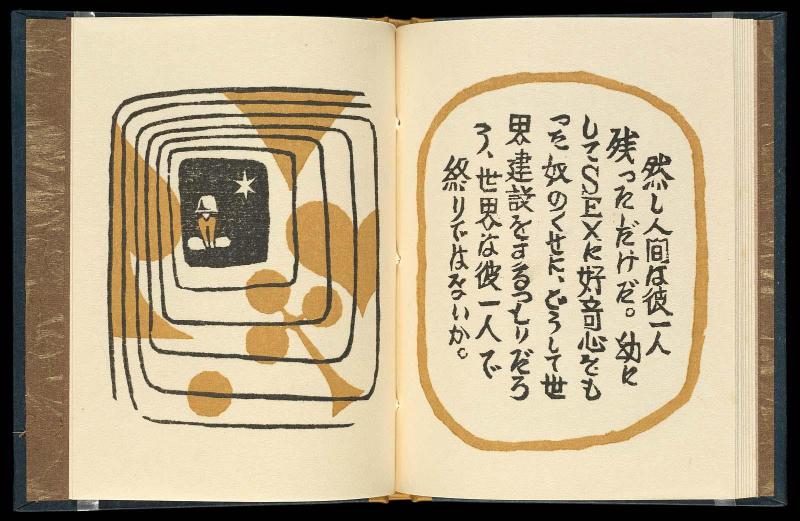 然し人間は彼一人
残っただけだ。幼に
してSEXに好奇心をも
った奴のくせに、どうして世
界建設をするつもりだろ
う、世界は彼一人で
終りではないか。